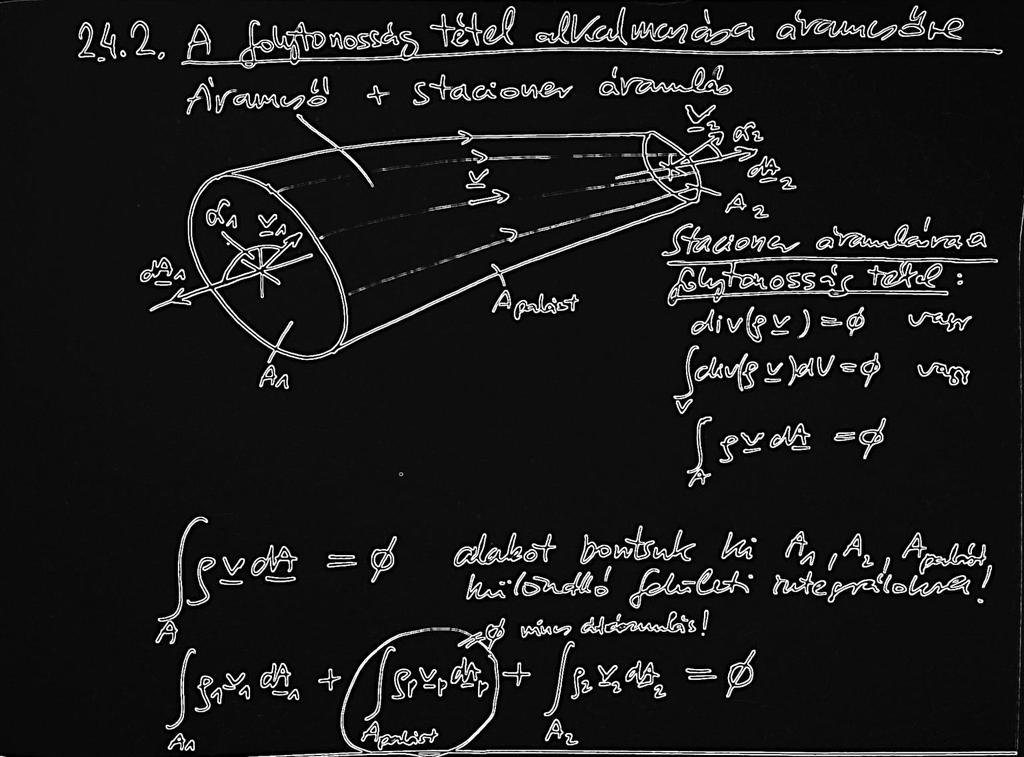 2.4.2. A folytonosság tétel alkalmazása áramcsőre
Áramcső + stacioner áramlás
v₂ α₂
dA₂
A₂
v
α₁ v₁
dA₁
A₁
A palást
Stacioner áramlásra a
folytonosság tétel:
div(ρ v) = ϕ vagy
∫_V div(ρ v)dV = ϕ vagy
∫_A ρ v dA = ϕ
∫_A ρ v dA = ϕ alakot bontsuk ki A₁, A₂, A palást
különálló felületi integrálokra!
= ϕ nincs átáramlás!
∫_A₁ ρ₁ v₁ dA₁ + ∫_A palást ρₚ vₚ dAₚ + ∫_A₂ ρ₂ v₂ dA₂ = ϕ